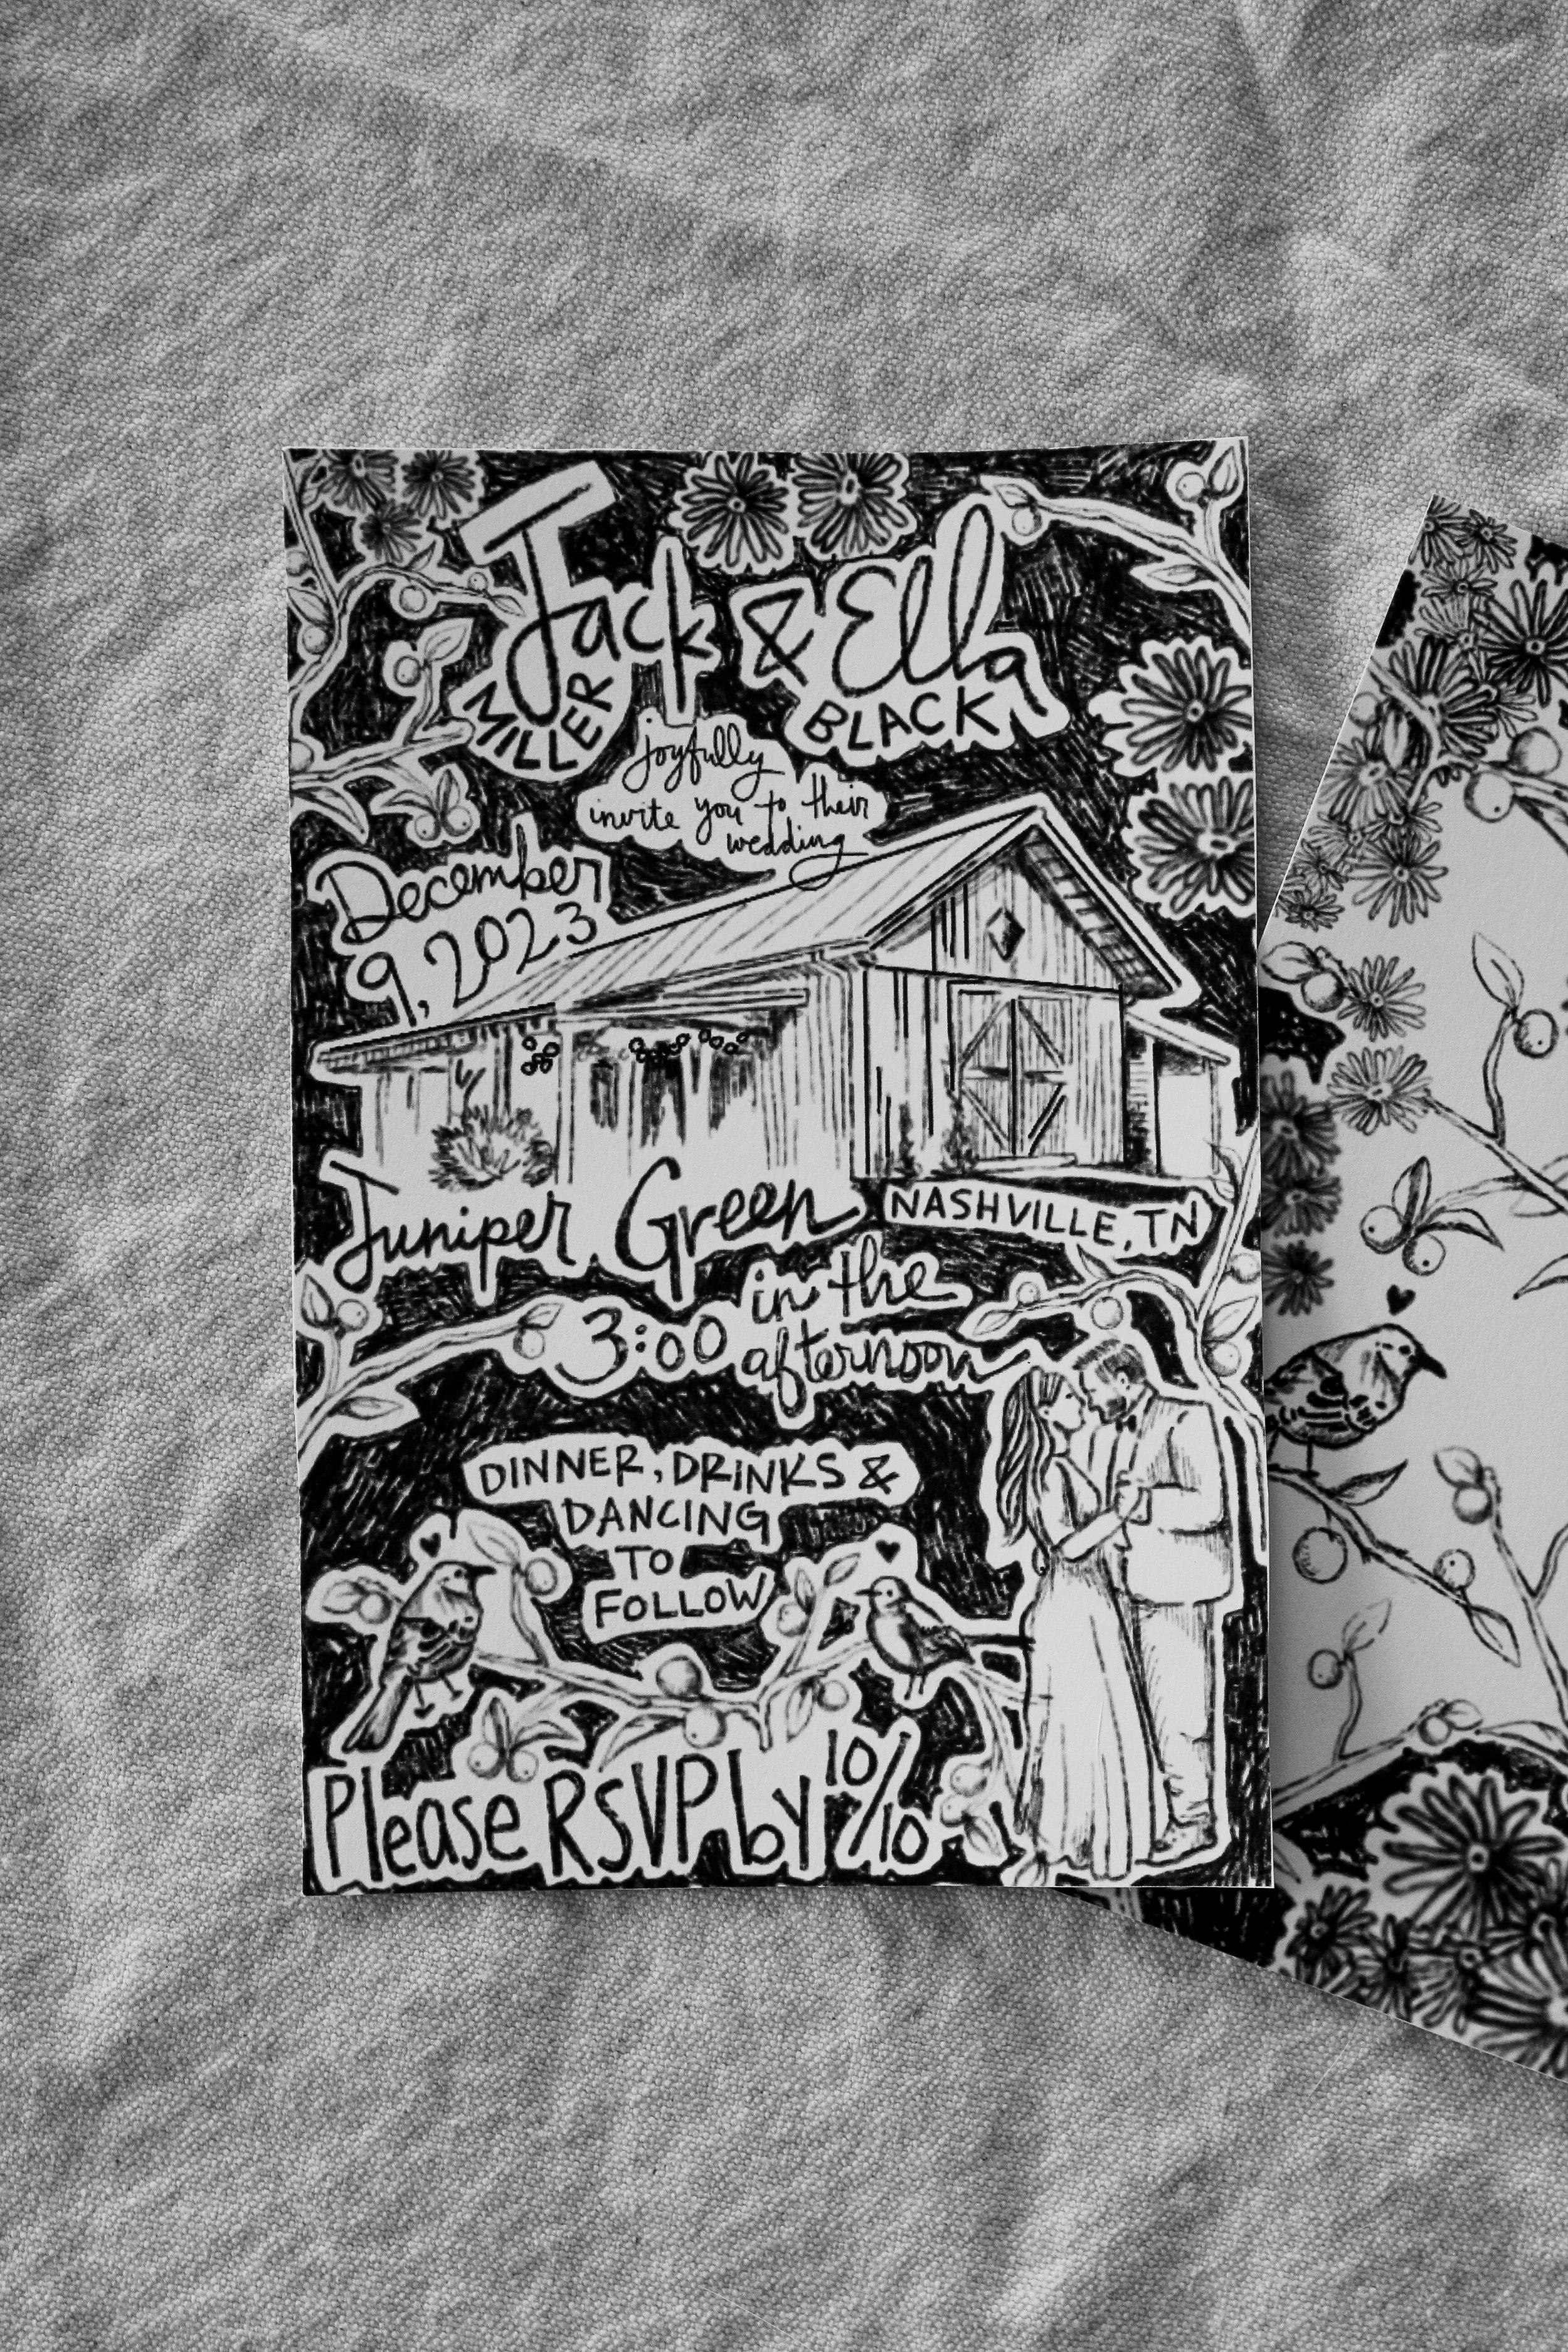 Jack & Ella
MILLER BLACK
joyfully
invite you to their
wedding
December
9, 2023
Juniper Green NASHVILLE, TN
3:00 in the
afternoon
DINNER, DRINKS &
DANCING
TO
FOLLOW
Please RSVP by 10/10